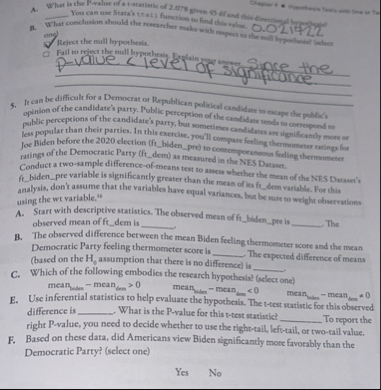 A. What is the P-value of a t-statistic of 2.078 given 45 df and this directional hypothesis?
You can use Stata's ttail function to find this value. 0.021722
B. What conclusion should the researcher make with respect to the null hypothesis? (select
one)
Reject the null hypothesis.
Fail to reject the null hypothesis. Explain your answer. Since the
p-value < level of significance
5. It can be difficult for a Democrat or Republican political candidate to escape the public's
opinion of the candidate's party. Public perception of the candidate tends to correspond to
public perceptions of the candidate's party, but sometimes candidates are significantly more or
less popular than their parties. In this exercise, you'll compare feeling thermometer ratings for
Joe Biden before the 2020 election (ft_biden_pre) to contemporaneous feeling thermometer
ratings of the Democratic Party (ft_dem) as measured in the NES Dataset.
Conduct a two-sample difference-of-means test to assess whether the mean of the NES Dataset's
ft_biden_pre variable is significantly greater than the mean of its ft_dem variable. For this
analysis, don't assume that the variables have equal variances, but be sure to weight observations
using the wt variable.
A. Start with descriptive statistics. The observed mean of ft_biden_pre is ______. The
observed mean of ft_dem is ______.
B. The observed difference between the mean Biden feeling thermometer score and the mean
Democratic Party feeling thermometer score is ______. The expected difference of means
(based on the H₀ assumption that there is no difference) is ______.
C. Which of the following embodies the research hypothesis? (select one)
mean_biden − mean_dem > 0 mean_biden − mean_dem < 0 mean_biden − mean_dem ≠ 0
E. Use inferential statistics to help evaluate the hypothesis. The t-test statistic for this observed
difference is ______. What is the P-value for this t-test statistic? ______ To report the
right P-value, you need to decide whether to use the right-tail, left-tail, or two-tail value.
F. Based on these data, did Americans view Biden significantly more favorably than the
Democratic Party? (select one)
Yes No